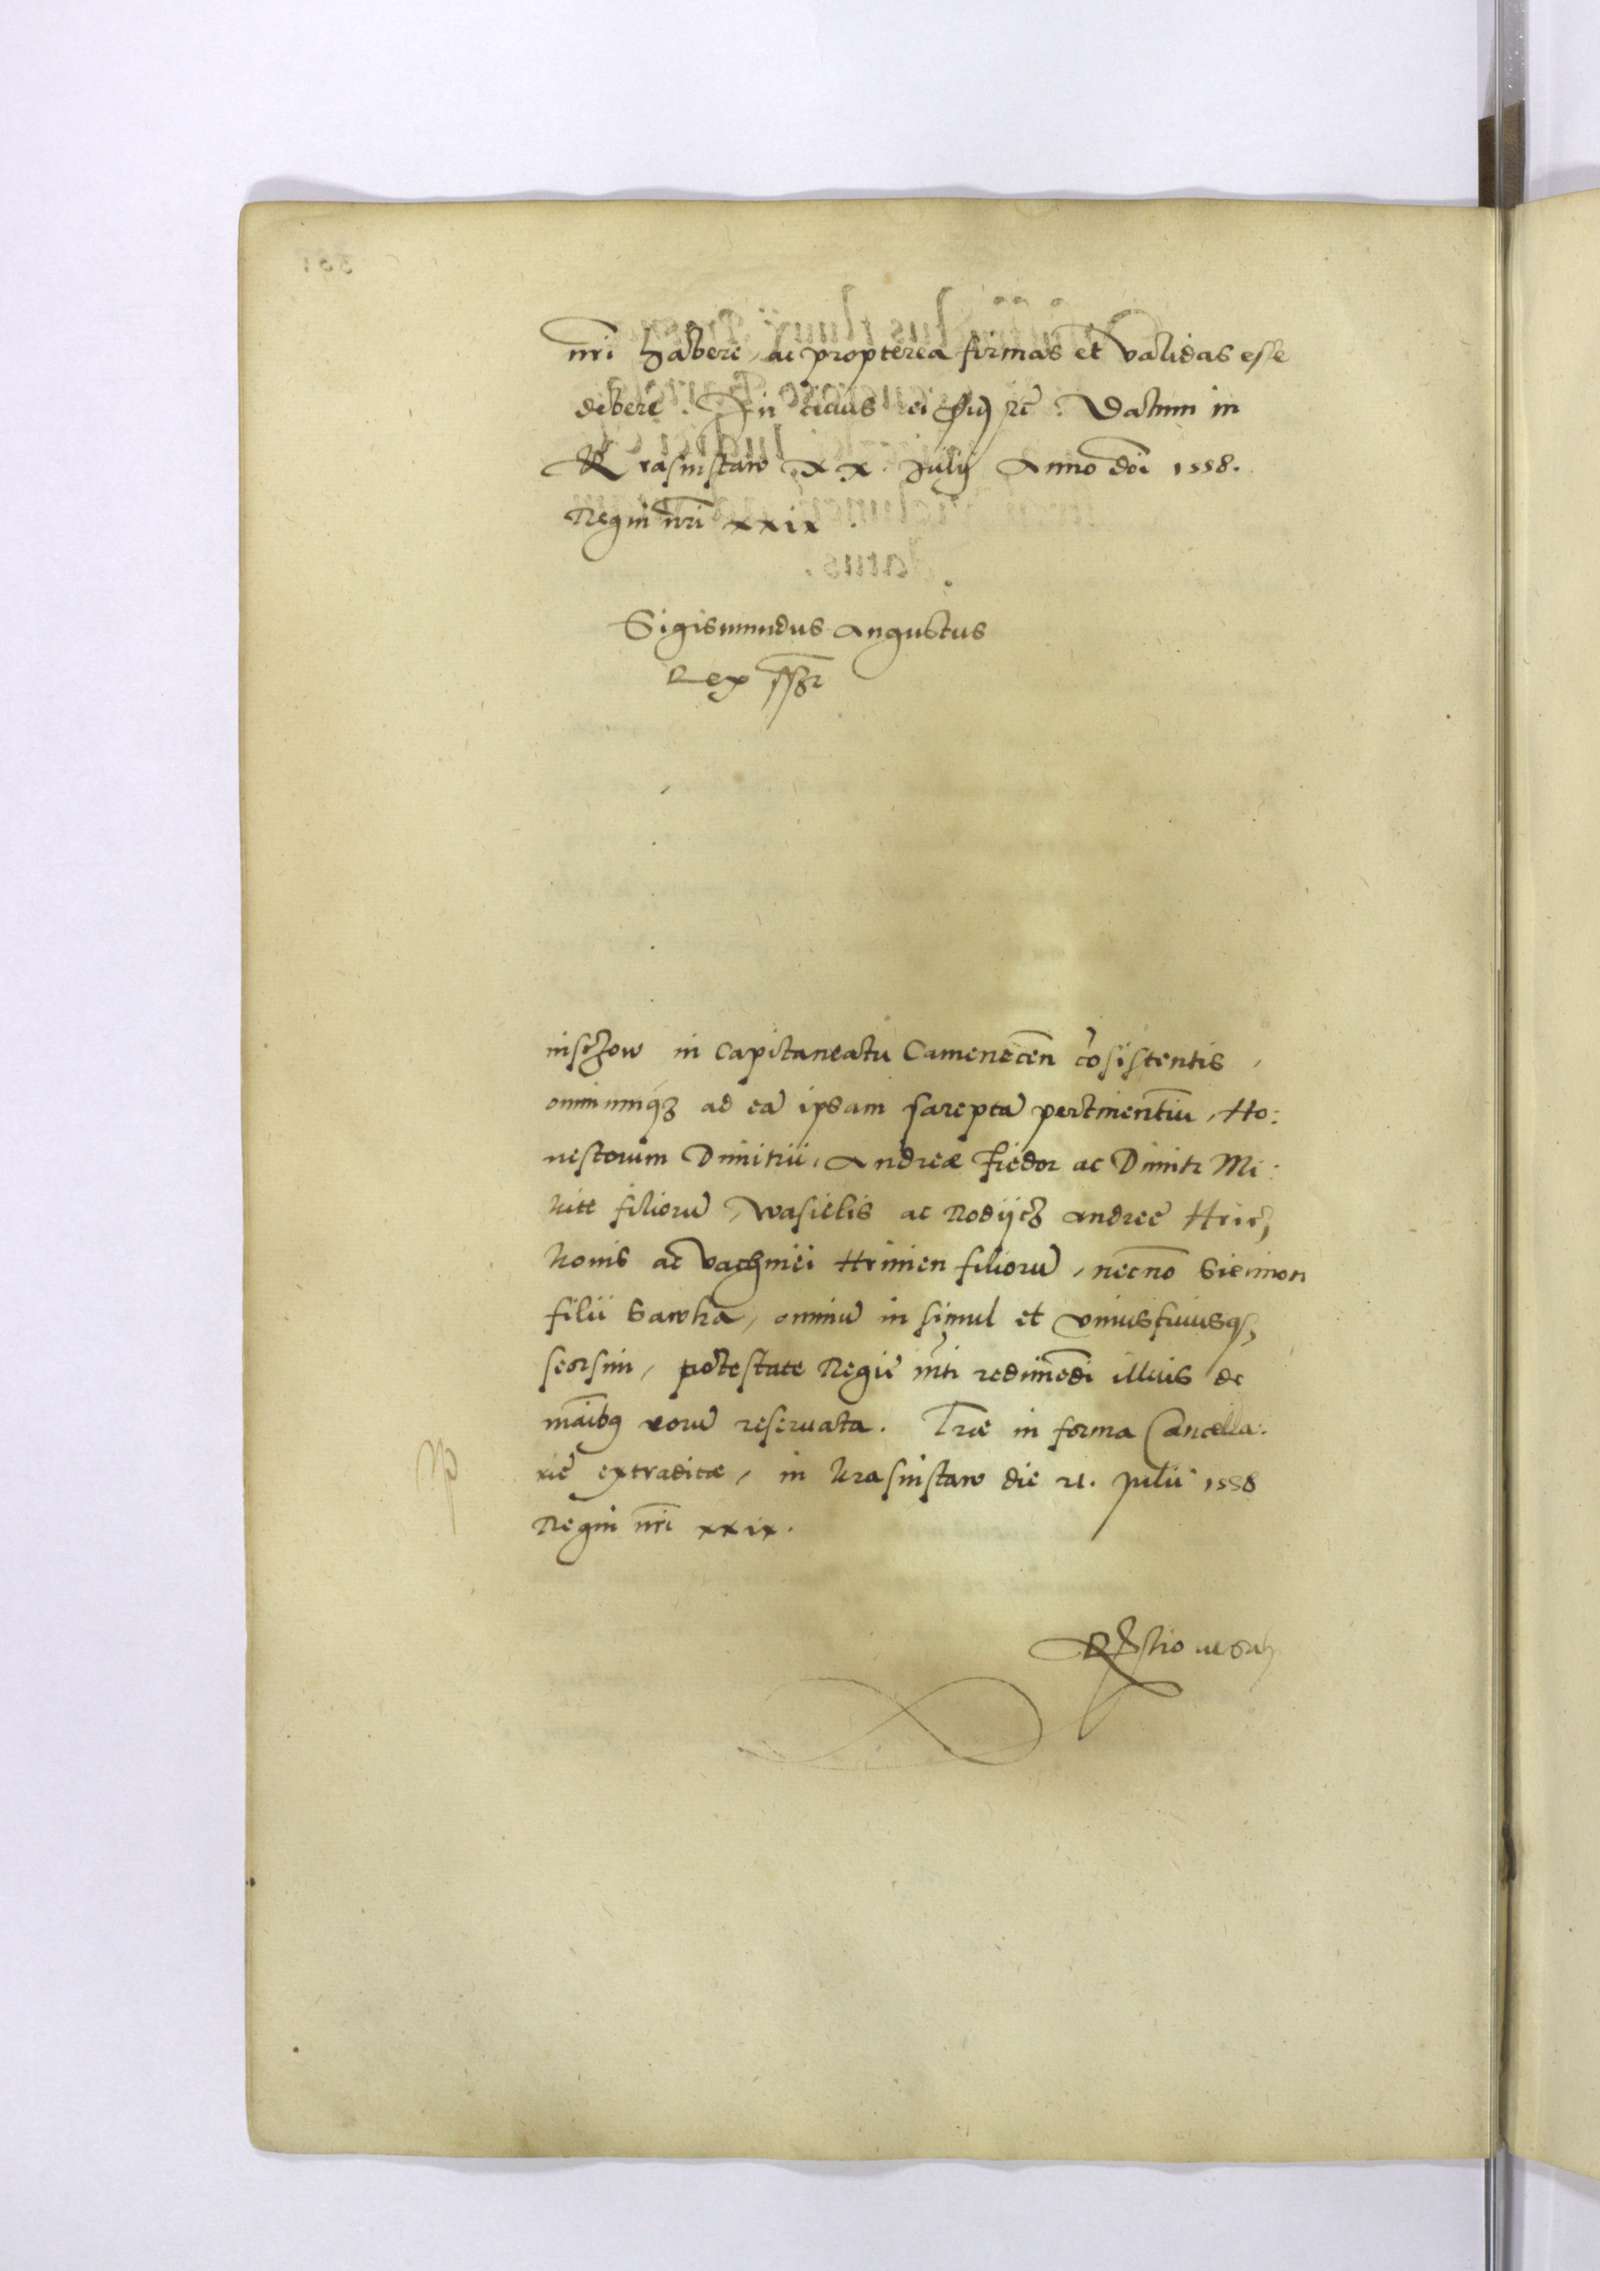 nri habere, ac propterea firmas et validas esse
debere. In cuius rei etc. Datum in
Krasnistaw XX Julij Anno doi 1558.
Regni nri xxix
Sigismundus Augustus
Rex sszt
nisczow in Capitaneatu Camenecen cosistentis,
omniumqz ad ea ipsam sarepta pertinentiu, Ho:
nestorum Dimitrii, Andreæ Fiedor ac Dimitr Mi:
kite filioru, Wasielis ac Rodijcz Andree Hricz,
konis ac Vachniei Hrinien filioru, necno Siemion
filii Sawka, omniu in simul et uniuscuiusqz
seorsim, potestate Regie mti redimedi illius de
maibus eoru reservata. Lræ in forma Cancella:
rie extraditæ, in Krasnistaw die 21. Julii 1558
Regni nri xxix.